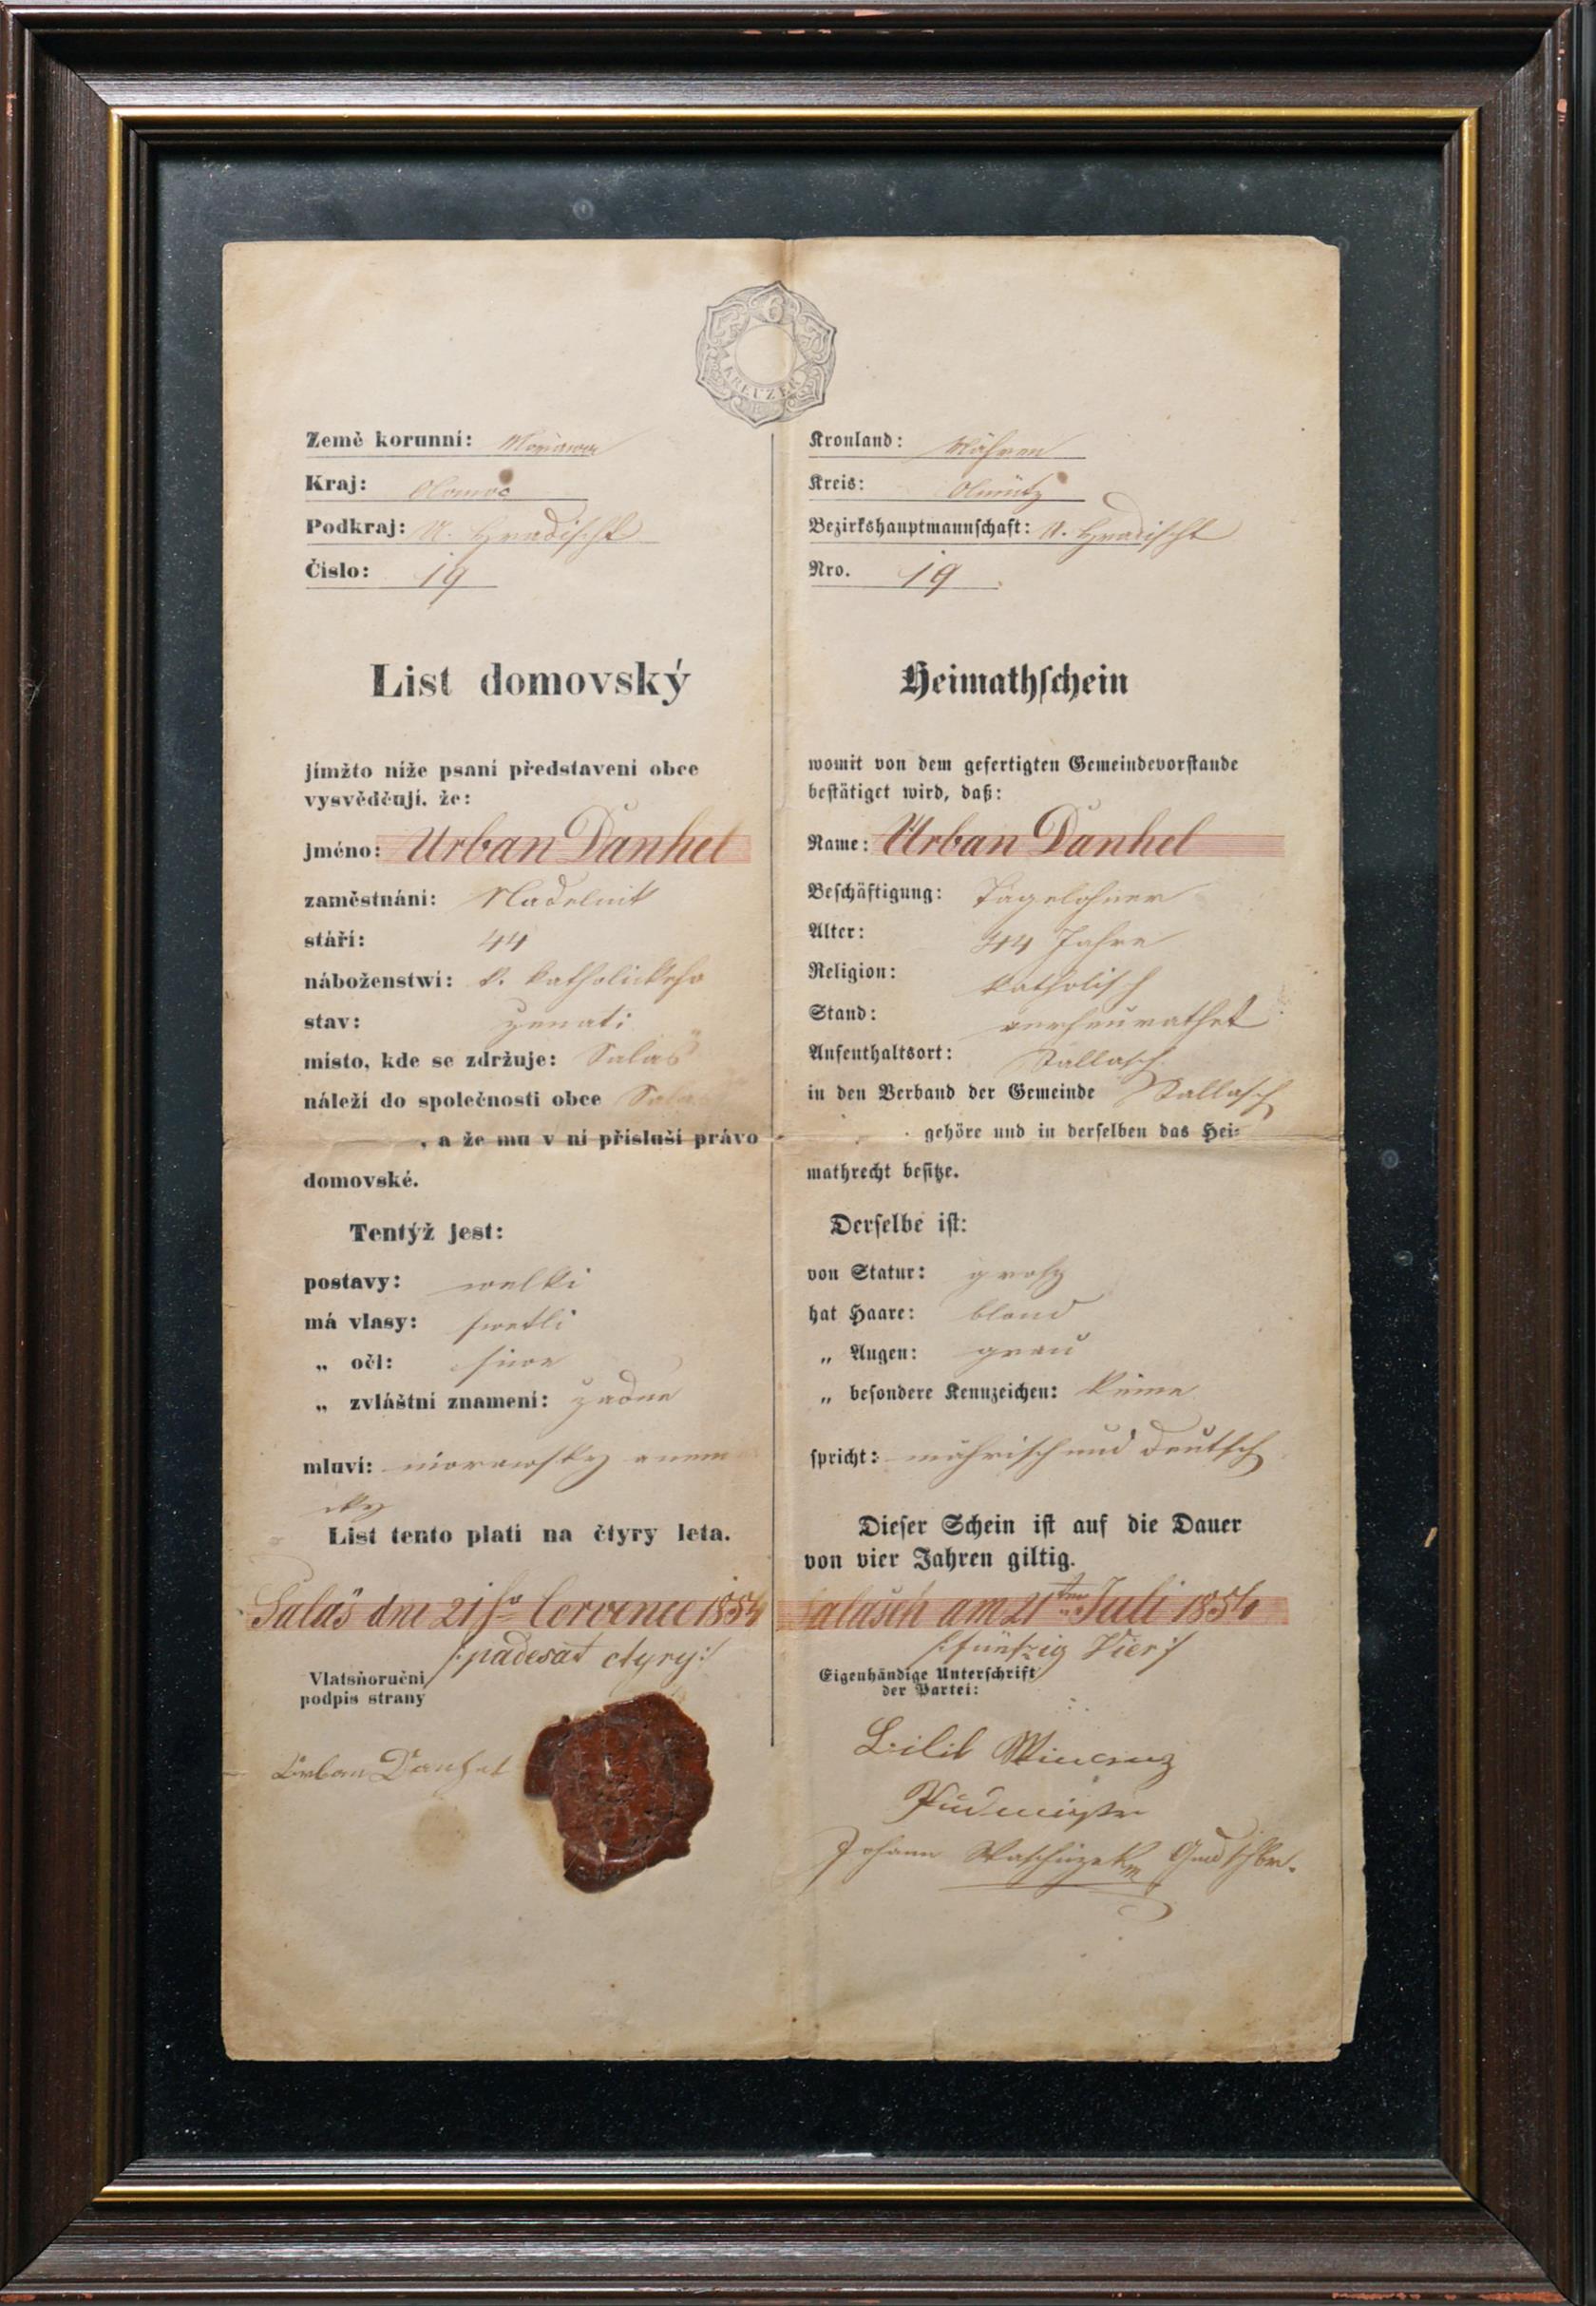 6
KREUZER
Země korunní: Morawa
Kraj: Olomoc
Podkraj: U. Hradischt
Číslo: 19
List domovský
jímžto níže psaní představení obce
vysvědčují, že:
jméno: Urban Daňhel
zaměstnání: Nadelnik
stáří: 44
náboženstwí: k. katholickeho
stav: zenati
místo, kde se zdržuje: Salaš
náleží do společnosti obce Salaš
, a že mu v ní přísluší právo
domovské.
Tentýž jest:
postavy: welki
má vlasy: swetli
„ oči: siwe
„ zvláštní znamení: žadne
mluví: morawsky anem
cky
List tento platí na čtyry leta.
Salaš dne 21ho Července 1854
/:padesat ctyry:/
Vlatsňoruční
podpis strany
Urban Daňhel
Kronland: Mähren
Kreis: Olmütz
Bezirkshauptmannschaft: U. Hradischt
Nro. 19
Heimathschein
womit von dem gefertigten Gemeindevorstande
bestätiget wird, daß:
Name: Urban Daňhel
Beschäftigung: Tagelohner
Alter: 44 Jahre
Religion: katholisch
Stand: verheurathet
Aufenthaltsort: Sallasch
in den Verband der Gemeinde Sallasch
gehöre und in derselben das Hei=
mathrecht besitze.
Derselbe ist:
von Statur: grosz
hat Haare: blond
„ Augen: grau
„ besondere Kennzeichen: keine
spricht: mährisch und deutsch
Dieser Schein ist auf die Dauer
von vier Jahren giltig.
Salasch am 21ten Juli 1854
/:fünfzig Vier:/
Eigenhändige Unterschrift
der Partei:
Johann